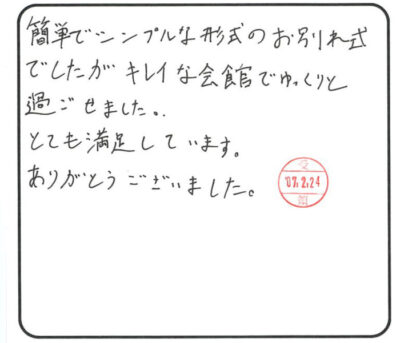 簡単でシンプルな形式のお別れ式
でしたがキレイな会館でゆっくりと
過ごせました。
とても満足しています。
ありがとうございました。
受
07.2.24
領